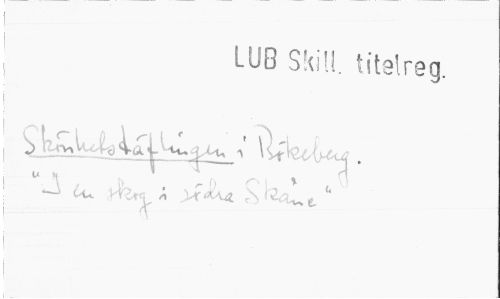 LUB Skill. titelreg.
Skönhetstäflingen i Bökeberg.
"I en skog i södra Skåne"